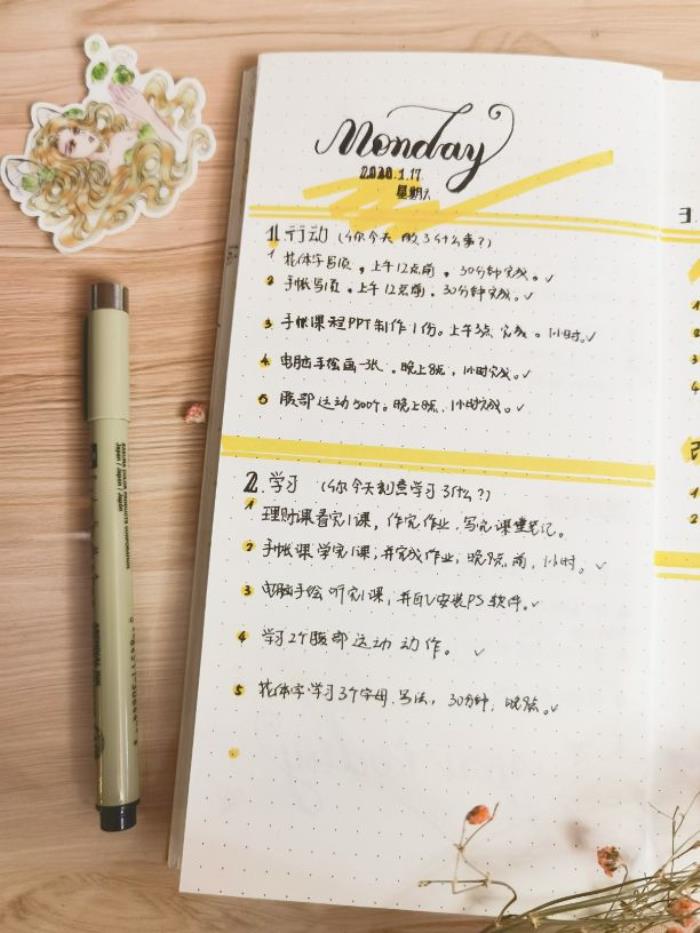 Monday
2020.1.17
星期六
1. 行动（你今天做了什么事？）
1 花体字写1页，上午12点前。30分钟完成。✓
2 手帐写1页，上午12点前。30分钟完成。✓
3 手帐课程PPT制作1份。上午3点完成。1小时。✓
4 电脑手绘画一张。晚上8点，1小时完成。✓
5 腹部运动500个。晚上8点，1小时完成。✓
2. 学习（你今天刻意学习了什么？）
1 理财课看完1课，作完作业，写完课堂笔记。
2 手帐课学完1课，并完成作业，晚9点前，1小时。✓
3 电脑手绘听完1课，并自己安装PS软件。✓
4 学习2个腹部运动动作。✓
5 花体字学习3个字母写法，30分钟，晚9点。✓
3
1
2
3
4
1
2
SAKURA COLOR PRODUCTS CORPORATION
Japan / Japan / Japan